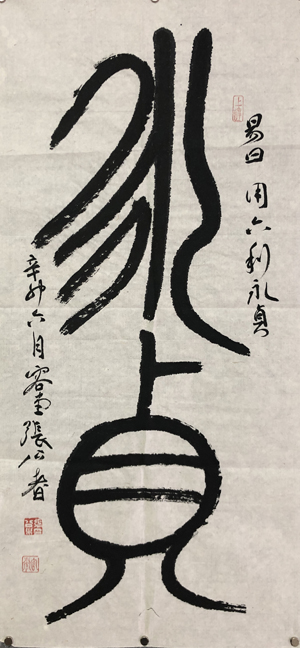 永貞
易曰用六利永貞
辛卯六月容堂張公者